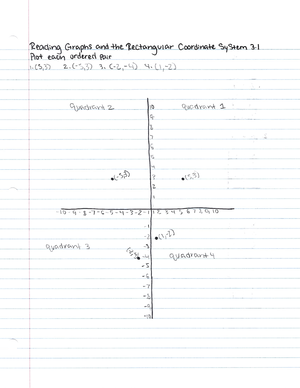 Reading Graphs and the Rectangular Coordinate System 3.1
Plot each ordered pair
1. (5,3) 2. (-5,3) 3. (-2,-4) 4. (1,-2)
quadrant 2
quadrant 1
10
9
8
7
6
5
4
3
2
1
(-5,3)
(5,3)
-10 -9 -8 -7 -6 -5 -4 -3 -2 -1 1 2 3 4 5 6 7 8 9 10
-1
-2
-3
-4
-5
-6
-7
-8
-9
-10
(1,-2)
quadrant 3
quadrant 4